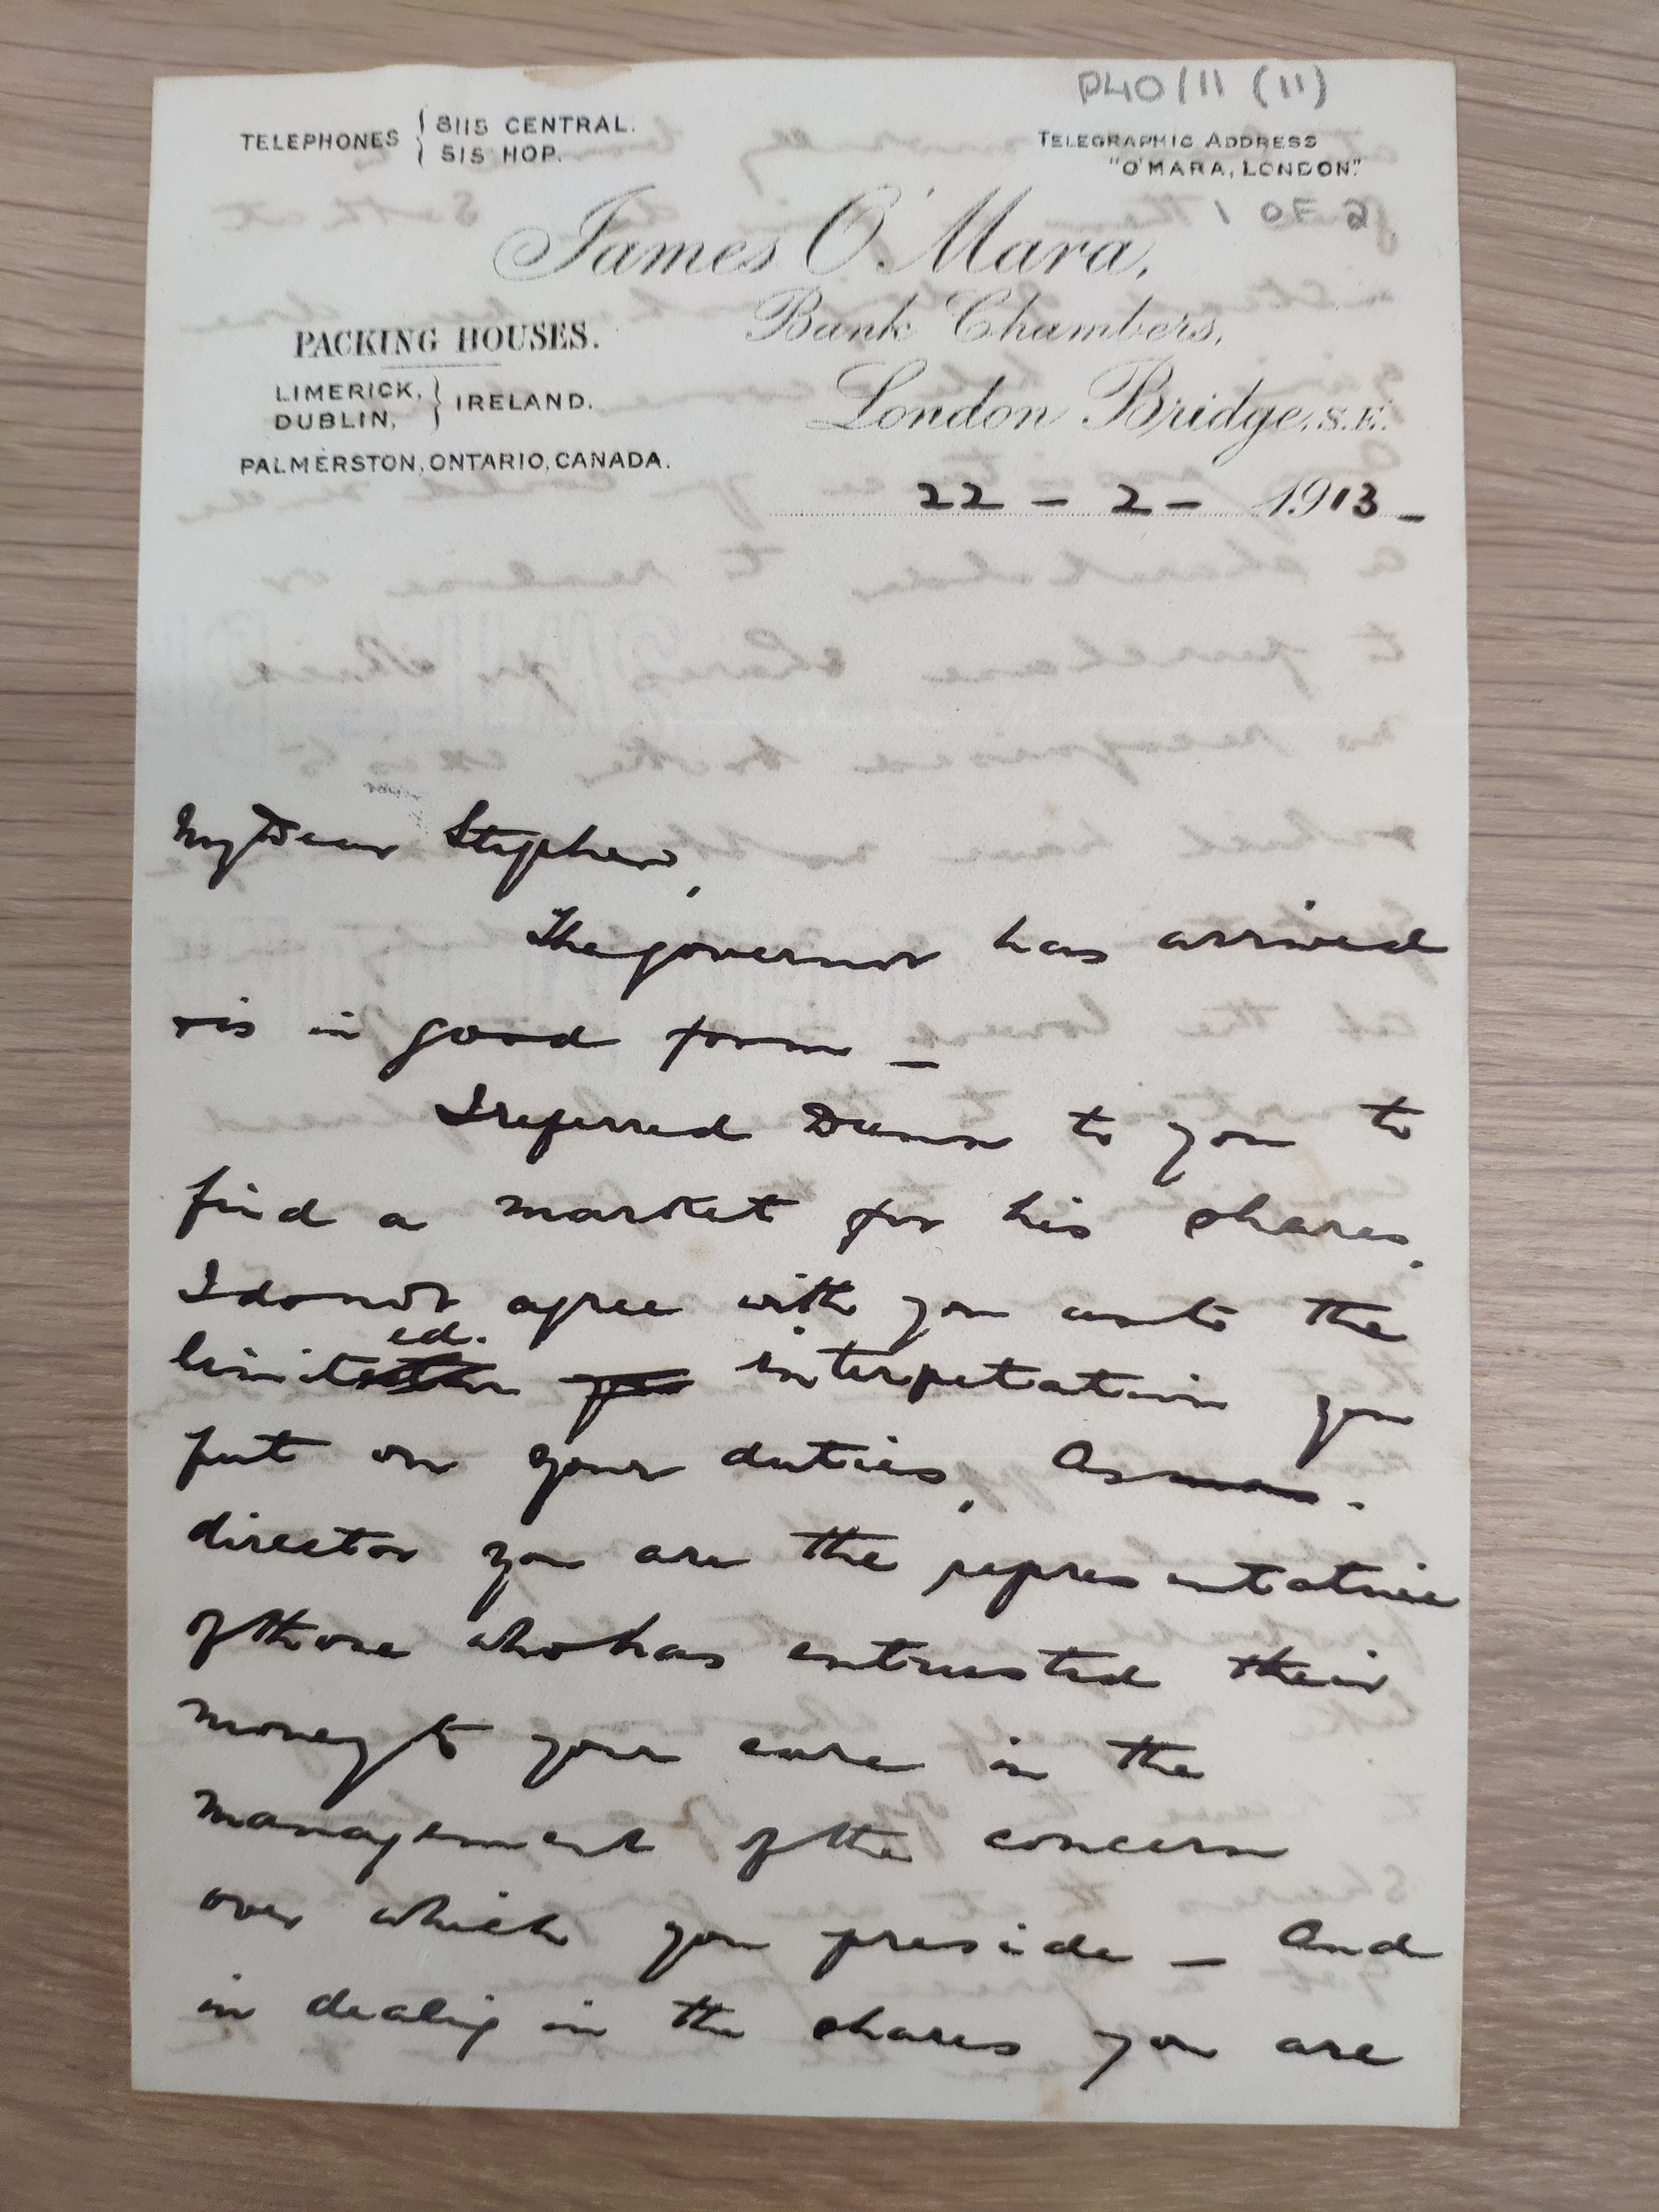 P40/11 (11)
TELEPHONES { 8115 CENTRAL.
515 HOP.
TELEGRAPHIC ADDRESS
"O'MARA, LONDON."
1 OF 2
James O'Mara,
Bank Chambers,
London Bridge, S.E.
PACKING HOUSES.
LIMERICK, } IRELAND.
DUBLIN,
PALMERSTON, ONTARIO, CANADA.
22 - 2 - 1913 -
My Dear Stephen,
The governor has arrived
+ is in good form -
I referred Dunn to you to
find a market for his shares.
I do not agree with you as to the
limited. interpetation you
put on your duties, As
director you are the representative
of those who has entrusted their
money to your care in the
management of the concern
over which you preside - And
in dealig in the shares you are